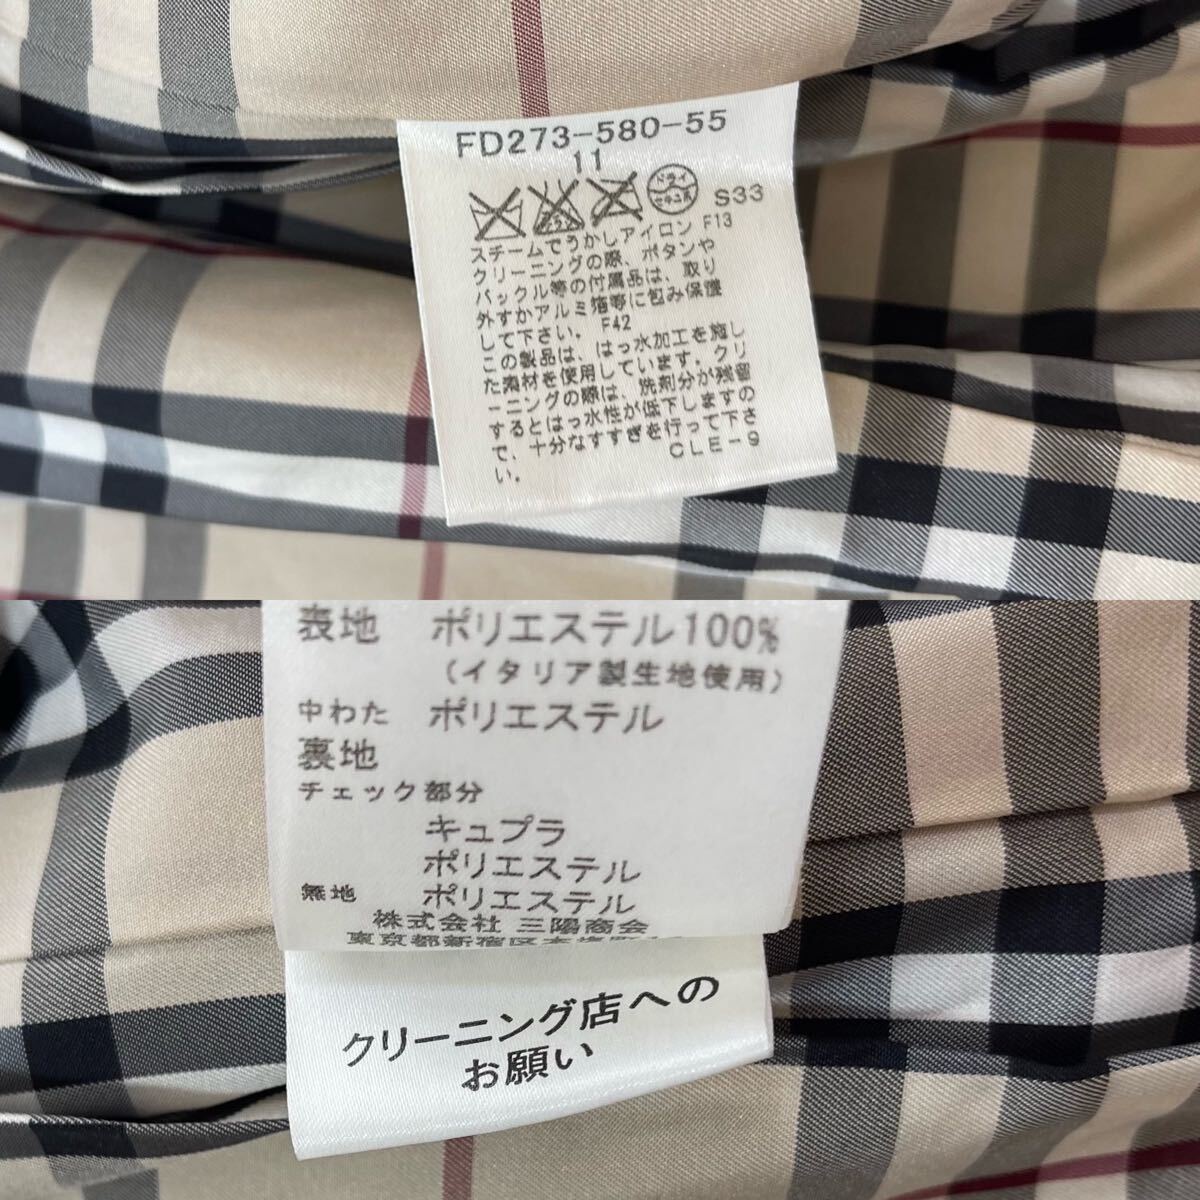 FD273-580-55
11
ドライ
セキユ系
S33
スチームでうかしアイロン F13
クリーニングの際、ボタンや
バックル等の付属品は、取り
外すかアルミ箔等に包み保護
して下さい。 F42
この製品は、はっ水加工を施し
た素材を使用しています。クリ
ーニングの際は、洗剤分が残留
するとはっ水性が低下しますの
で、十分なすすぎを行って下さ
い。 CLE-9
表地 ポリエステル100%
(イタリア製生地使用)
中わた ポリエステル
裏地
チェック部分
キュプラ
ポリエステル
無地 ポリエステル
株式会社 三陽商会
東京都新宿区本塩町
クリーニング店への
お願い